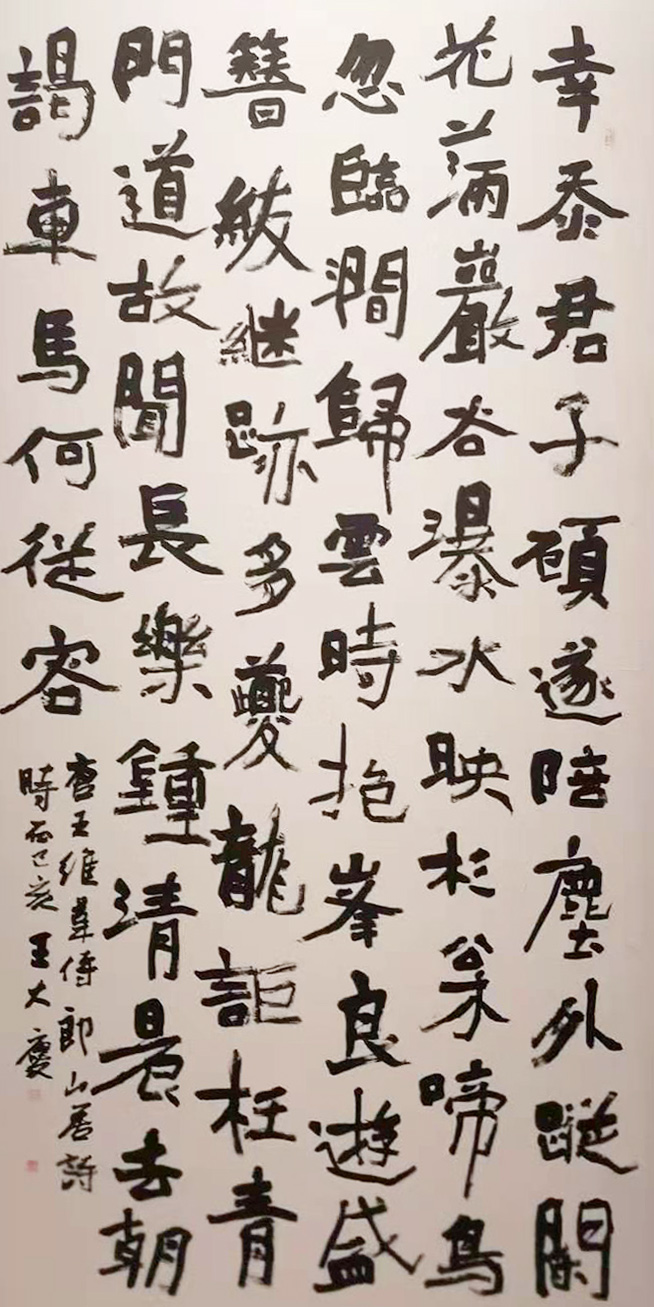 幸忝君子顧遂陪塵外蹤閑
花滿巖谷瀑水映杉枀啼鳥
忽臨澗歸雲時抱峯良遊盛
簪紱継跡多夔龍詎枉青
門道故聞長樂鍾清晨去朝
謁車馬何從容
唐王維韋侍郎山居詩
時在己亥王大慶